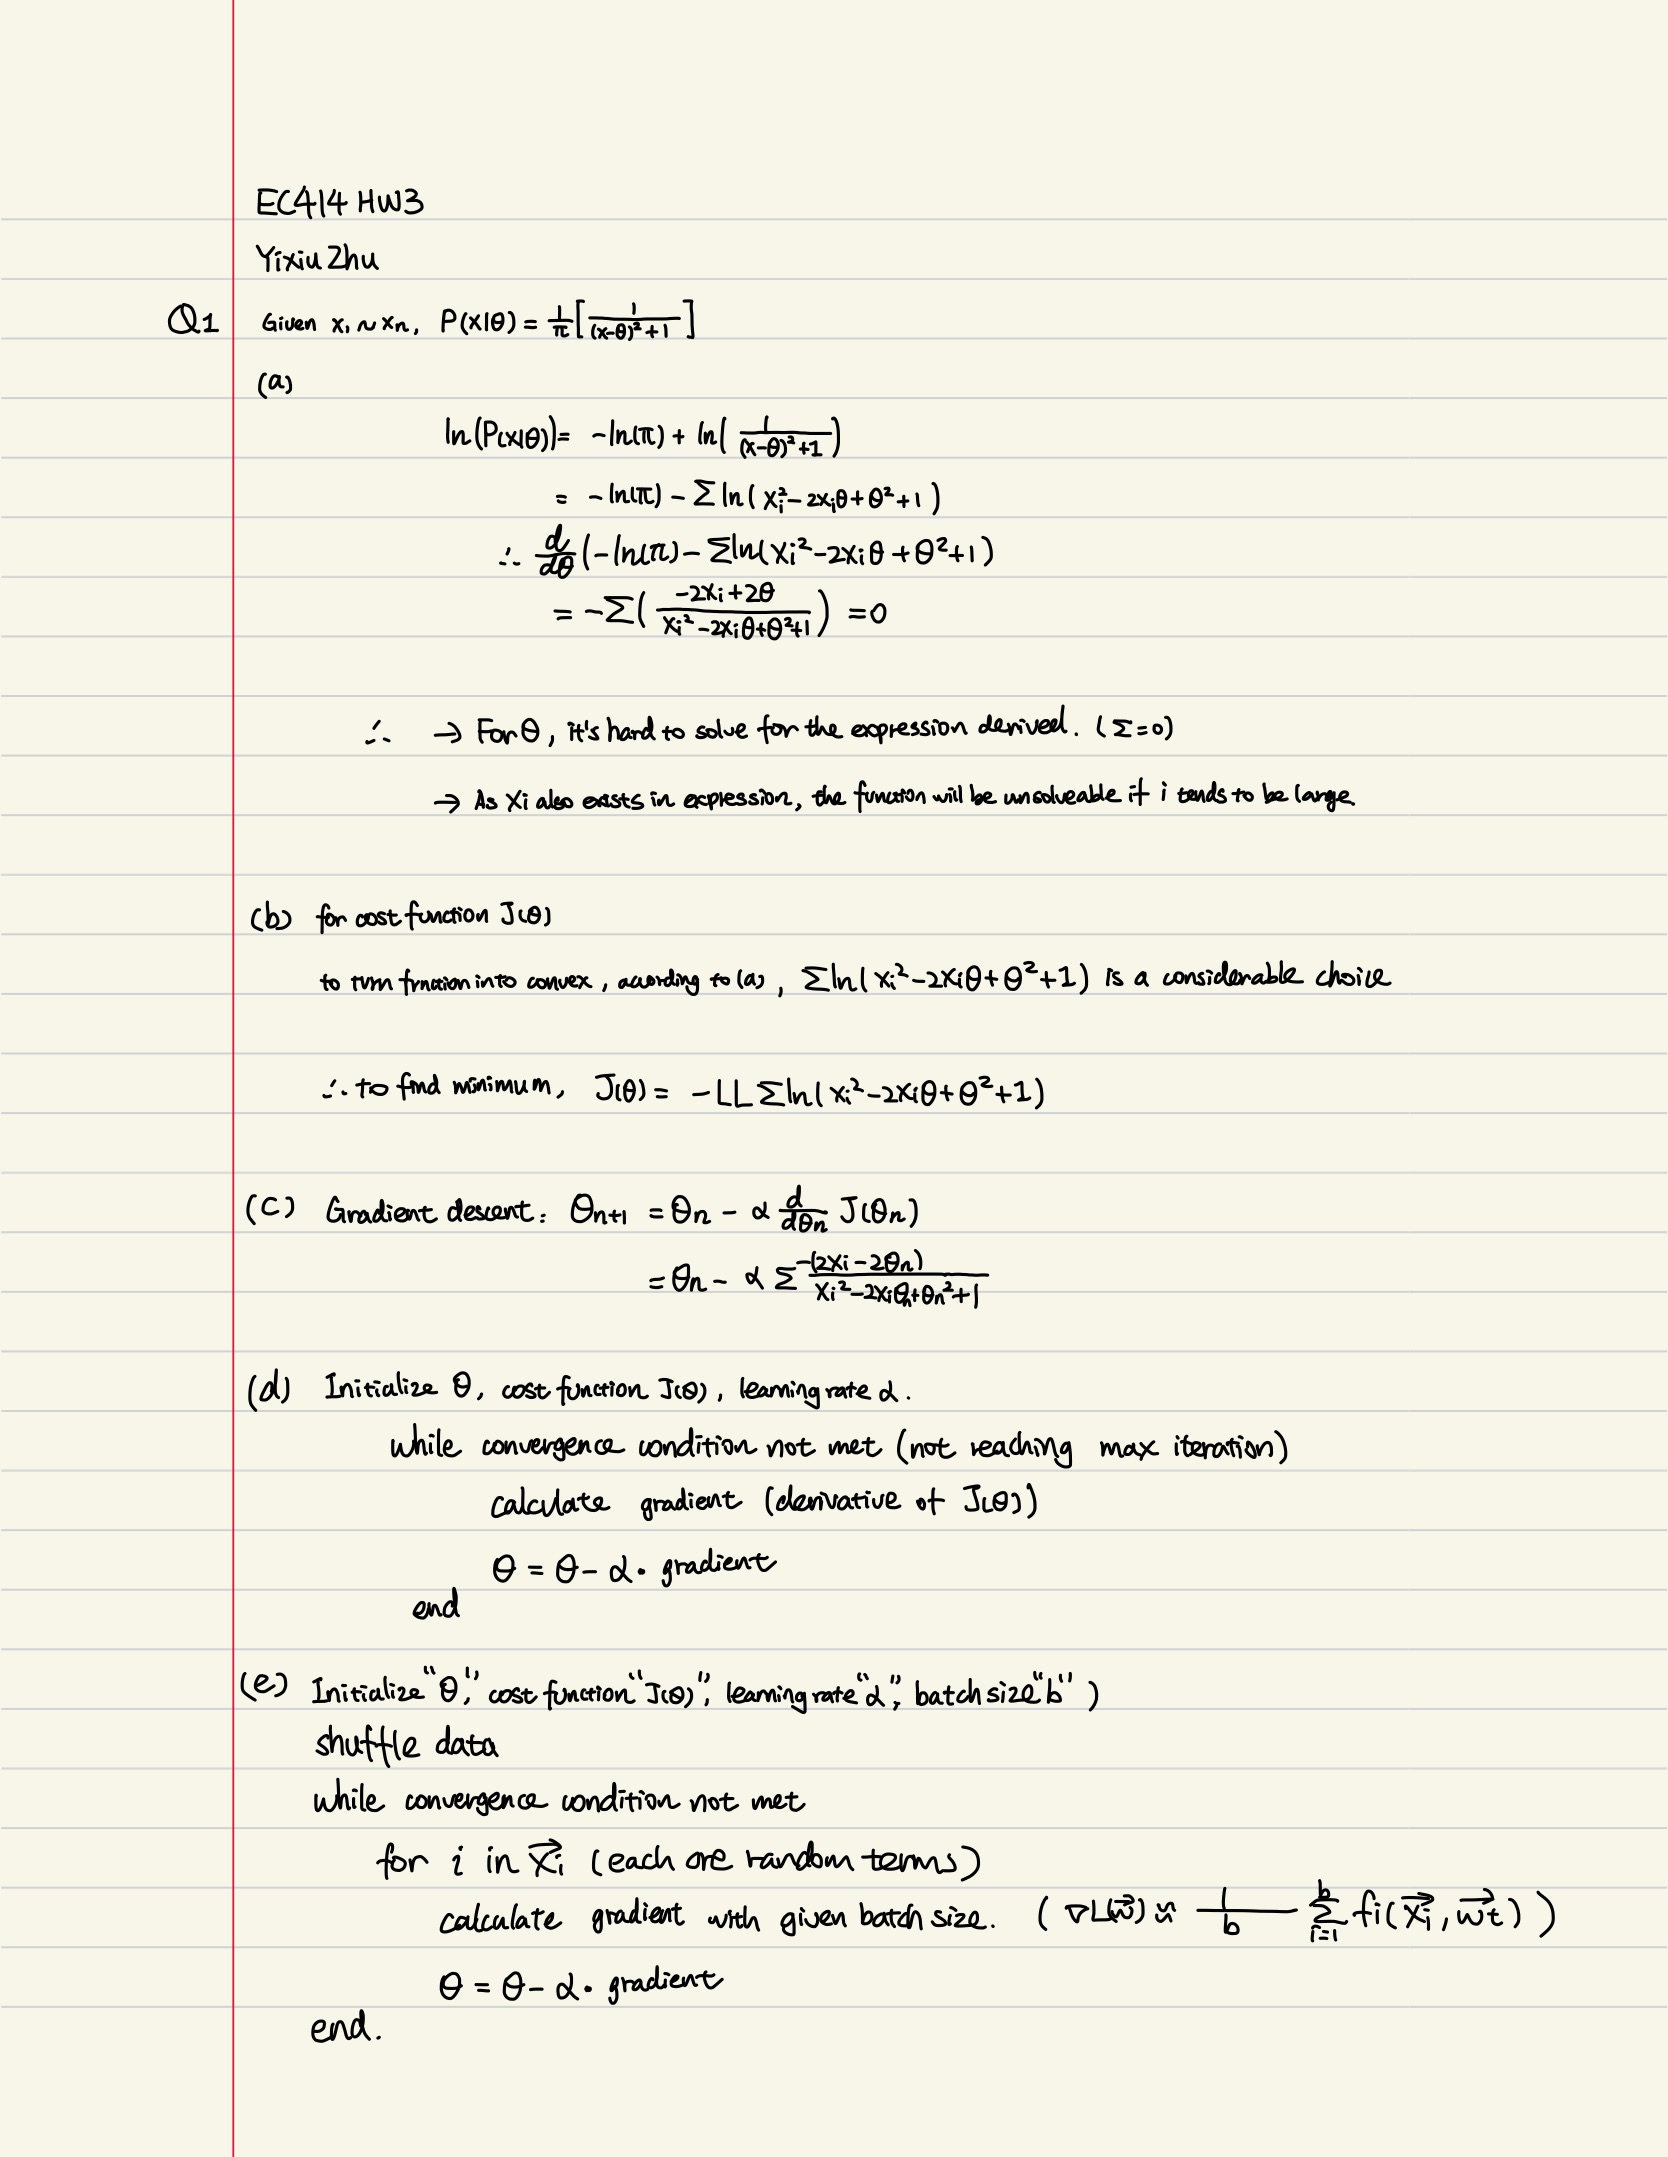 EC414 HW3
Yixiu Zhu
Q1 Given x₁ ~ xₙ, P(x|θ) = 1/π [1/((x-θ)²+1)]
(a)
ln(P(x|θ)) = -ln(π) + ln(1/((x-θ)²+1))
= -ln(π) - Σ ln(xᵢ² - 2xᵢθ + θ² + 1)
∴ d/dθ (-ln(π) - Σln(xᵢ² - 2xᵢθ + θ² + 1)
= -Σ((-2xᵢ+2θ)/(xᵢ² - 2xᵢθ + θ² + 1)) = 0
∴ → For θ, it's hard to solve for the expression derived. (Σ=0)
→ As xᵢ also exists in expression, the function will be unsolveable if i tends to be large.
(b) for cost function J(θ)
to turn function into convex, according to (a), Σln(xᵢ² - 2xᵢθ + θ² + 1) is a considerable choice
∴ to find minimum, J(θ) = -LL Σln(xᵢ² - 2xᵢθ + θ² + 1)
(c) Gradient descent: θₙ₊₁ = θₙ - α d/dθₙ J(θₙ)
= θₙ - α Σ -(2xᵢ - 2θₙ)/(xᵢ² - 2xᵢθₙ + θₙ² + 1)
(d) Initialize θ, cost function J(θ), learning rate α.
while convergence condition not met (not reaching max iteration)
calculate gradient (derivative of J(θ))
θ = θ - α · gradient
end
(e) Initialize "θ", cost function "J(θ)", learning rate "α", batch size "b")
shuffle data
while convergence condition not met
for i in x⃗ᵢ (each are random terms)
calculate gradient with given batch size. (∇L(w⃗) ≈ 1/b Σᵢ₌₁ᵇ fi(x⃗ᵢ, w⃗t))
θ = θ - α · gradient
end.